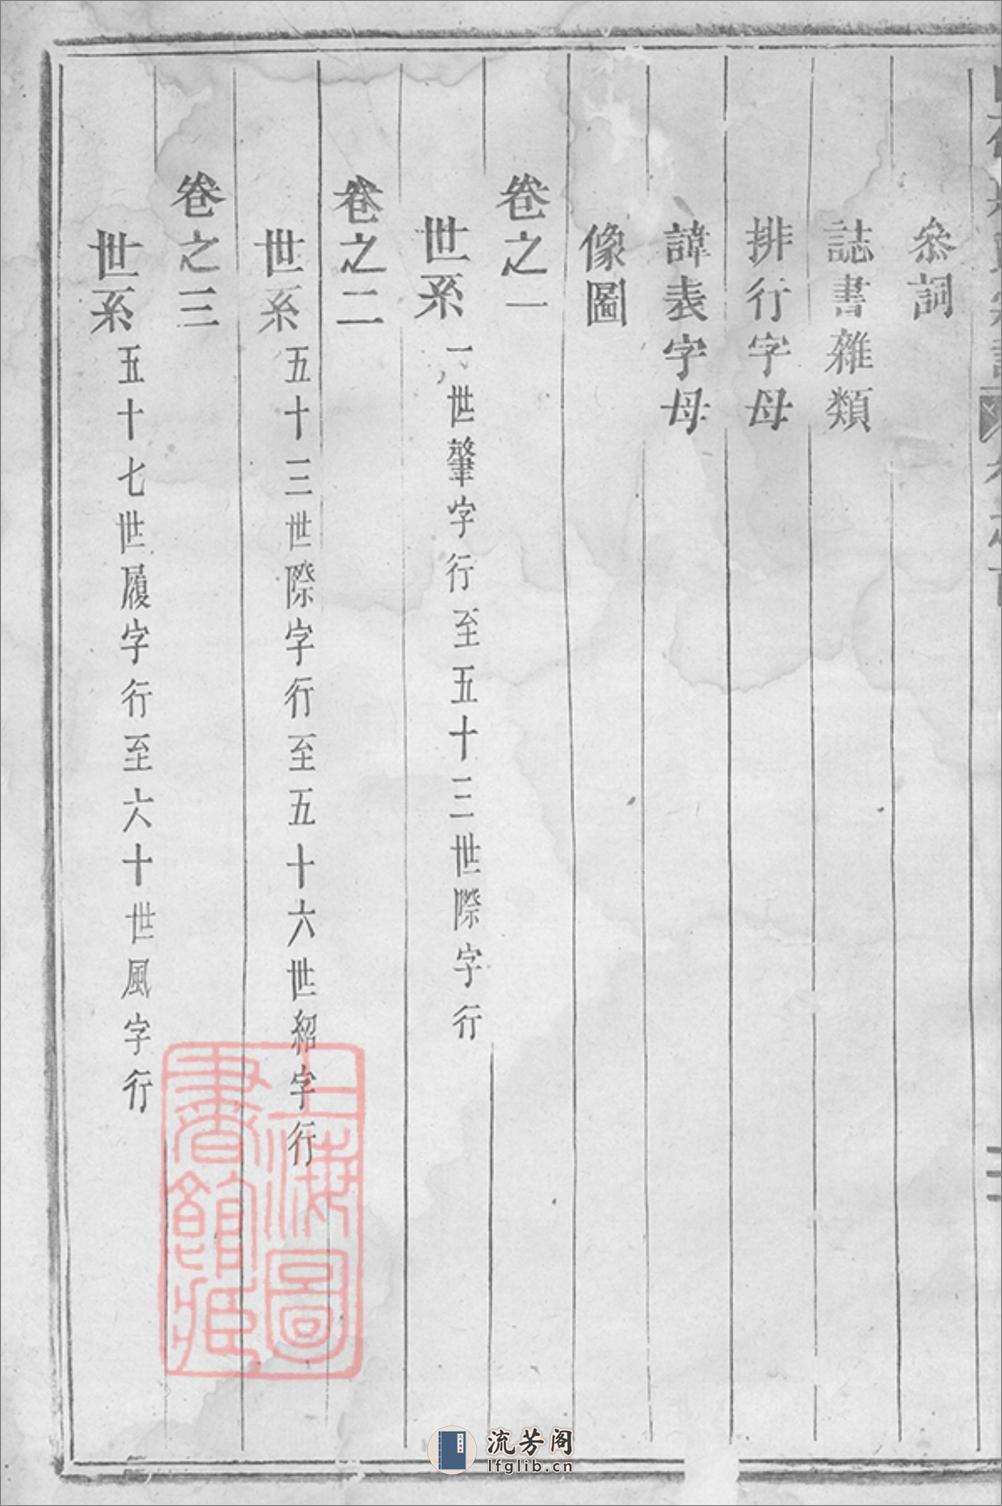 叅詞
誌書雜類
排行字母
諱表字母
像圖
卷之一
世系一世肇字行至五十三世際字行
卷之二
世系五十三世際字行至五十六世紹字行
卷之三
世系五十七世履字行至六十世風字行
上海圖
書館藏
流芳阁
lfglib.cn